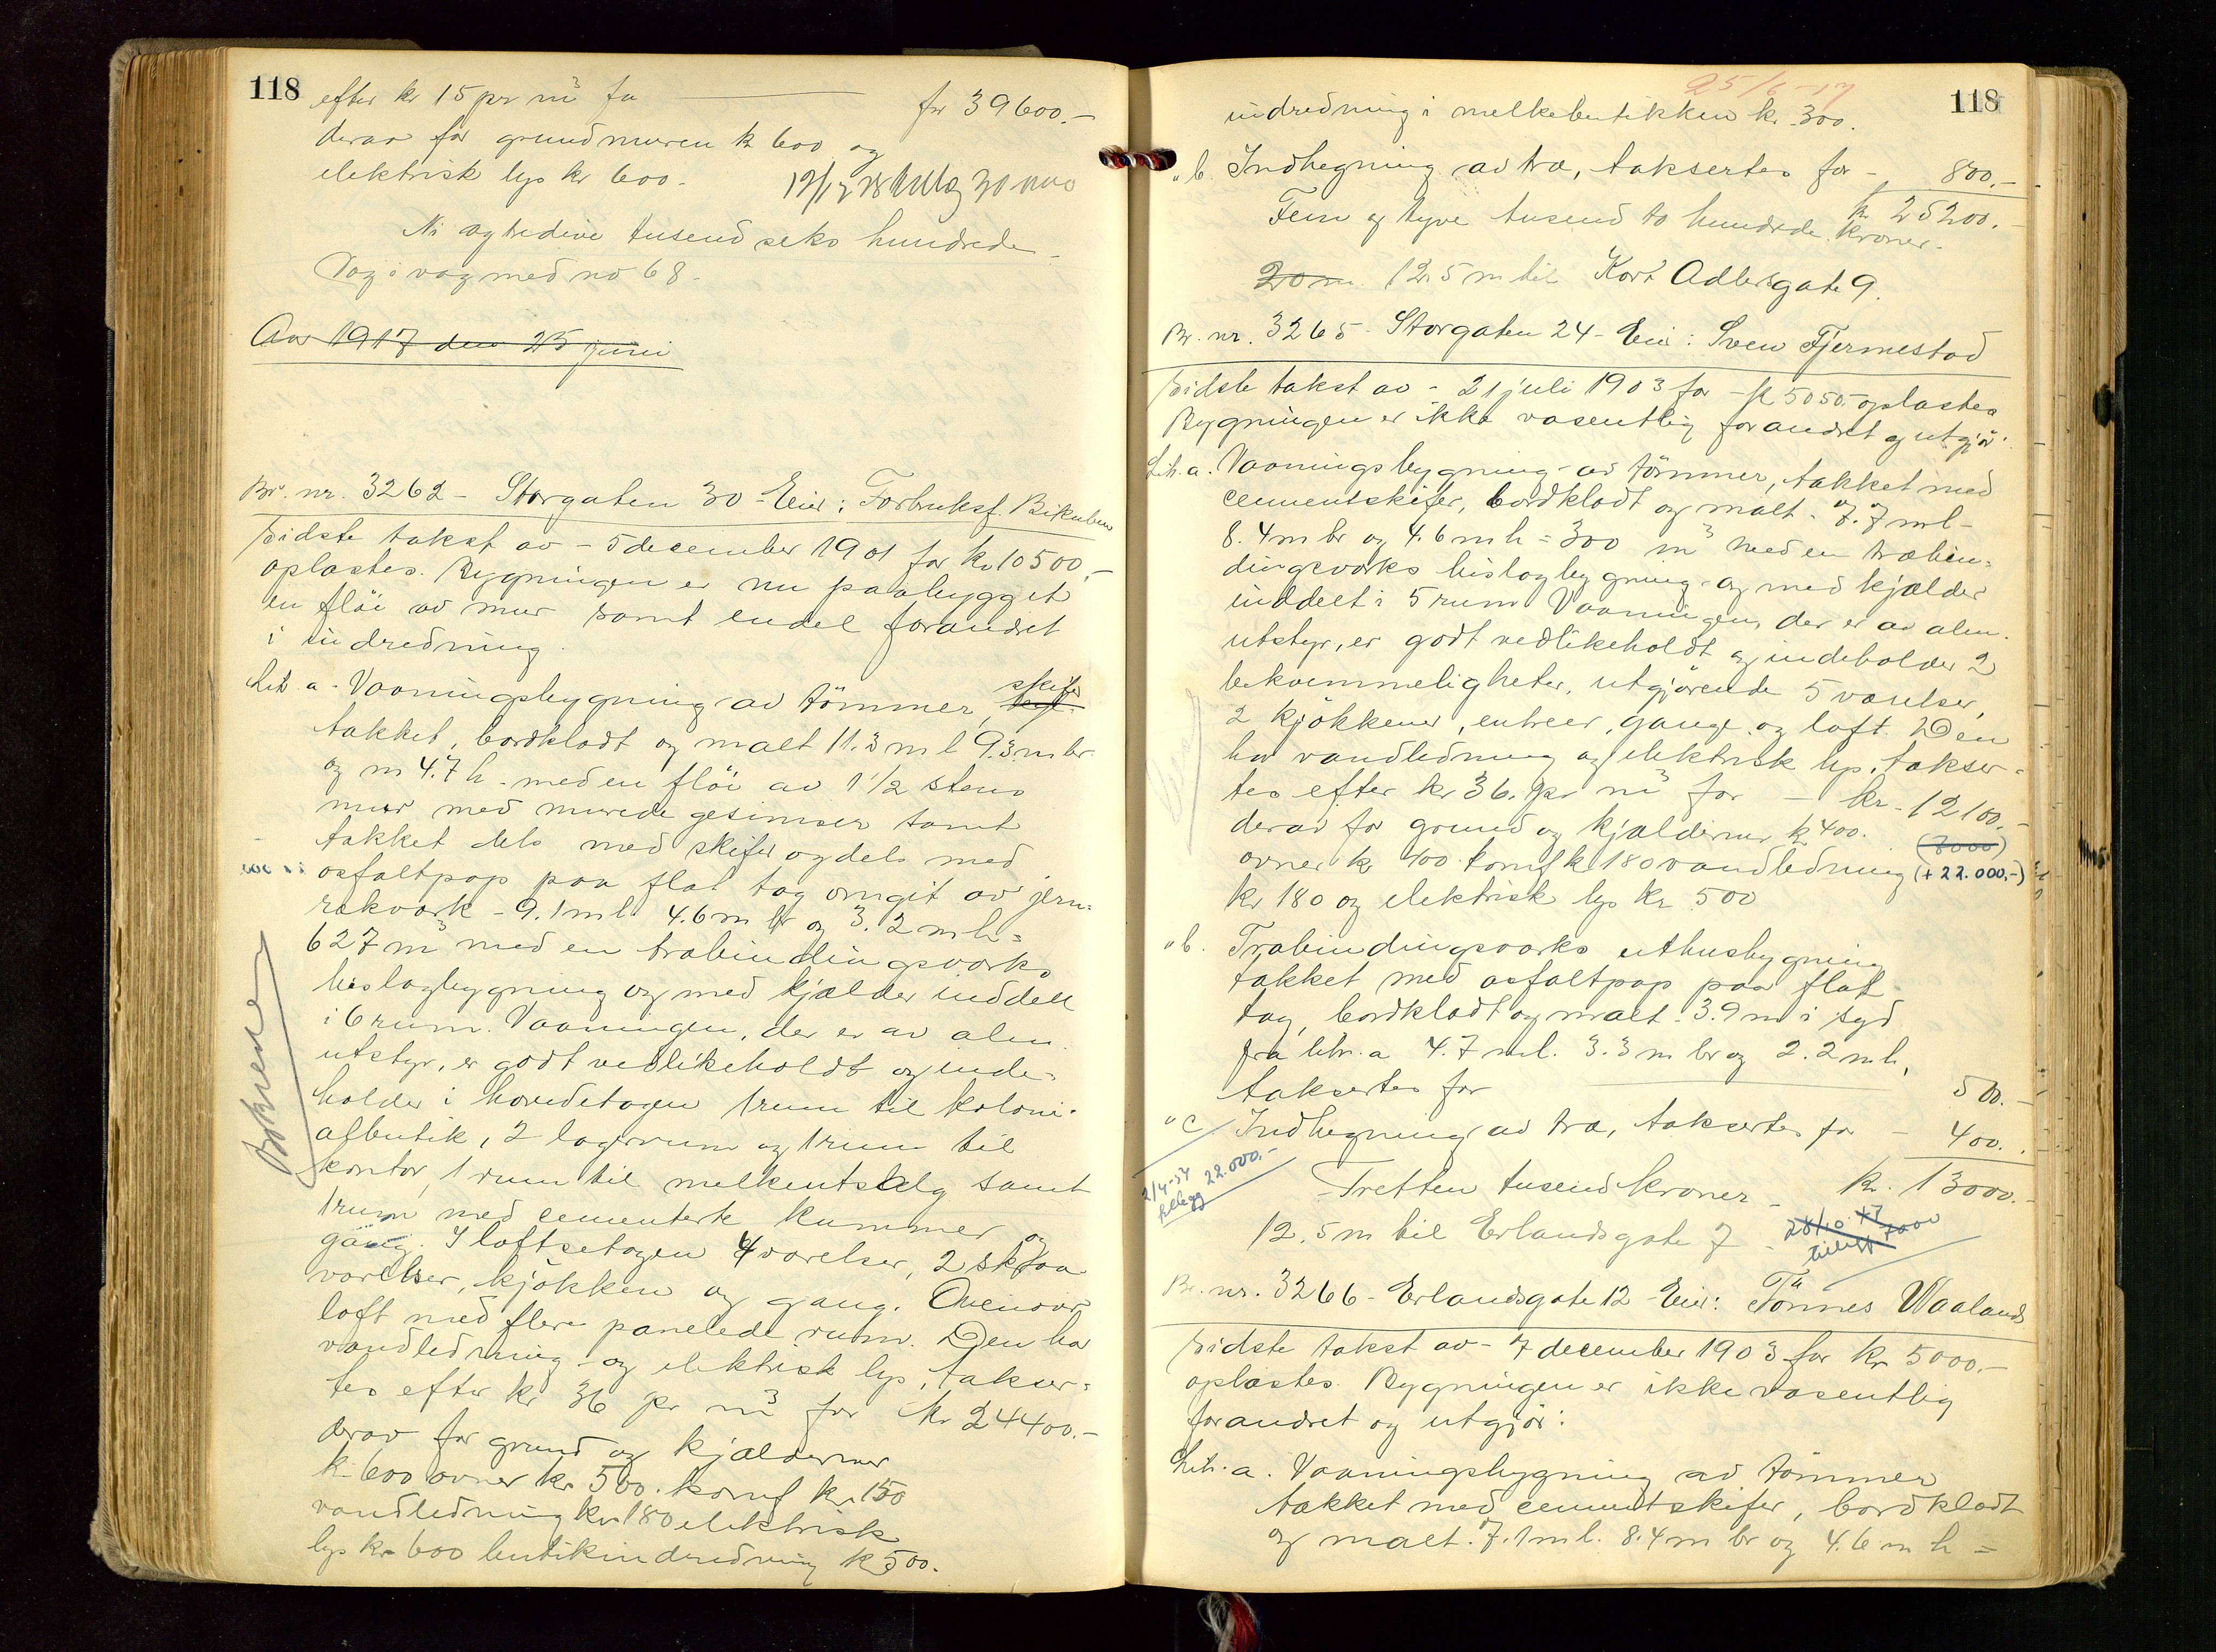 118
efter kr 15 pr m³ fa — for 39600.-
derav for grundmuren kr 600 og
elektrisk lys kr 600.-
Ni og tredive tusend seks hundrede
Væg i væg med no 68.
Aar 1917 den 25 juni
Br. nr. 3262 - Storgaten 30 - Eier: Forbruksf. Bikuben
Sidste takst av - 5 december 1901 for kr 10500.-
oplæstes. Bygningen er nu paabygget
en fløi av mur samt endel forandret
i indredning.
Litr. a. Vaaningsbygning av tømmer, skifer
tækket, bordklædt og malt 11.3 m l 9.3 m br
og m 4.7 h - med en fløi av 1 1/2 stens
mur med murede gesimser samt
tækket dels med skifer og dels med
asfaltpap paa flat tag omgit av jern=
rækværk - 9.1 m l. 4.6 m br og 3.2 m h =
627 m³ med en træbindingsværks
bislagbygning og med kjælder inddelt
i 6 rum. Vaaningen, der er av alm.
utstyr, er godt vedlikeholdt og inde=
holder i hovedetagen 1 rum til koloni=
albutik, 2 lagerrum og 1 rum til
kontor, 1 rum til melkeutsalg samt
1 rum med cementerte kummer og
gang. I loftsetagen 4 værelser, 2 skraa
værelser, kjøkken og gang. Ovenover
loft med flere panelede rum. Den har
vandledning - og elektrisk lys, takser=
tes efter kr 36 pr m³ for kr 24400.-
derav for grund og kjældermur
kr 600 ovner kr 500. komf kr. 150
vandledning kr 180 elektrisk
lys kr 600 butikindredning kr 500.
118
25/6-17
indredning i melkebutikken kr. 300.
" b. Indhegning av træ, takseres for - 800.-
kr 25200.-
Fem og tyve tusend to hundrede kroner.
20 m. 12.5 m til Kort Adlersgate 9.
Br. nr. 3265 - Storgaten 24 - Eier: Sven Fjermestad
Sidste takst av - 21 juli 1903 for - kr 5050.- oplæstes
Bygningen er ikke væsentlig forandret og utgjør:
Litr. a. Vaaningsbygning - av tømmer, tækket med
cementskifer, bordklædt og malt. 7.7 m l -
8.4 m br og 4.6 m h = 300 m³ med en træbin=
dingsværks bislagbygning - og med kjælder
inddelt i 5 rum Vaaningen, der er av alm.
utstyr, er godt vedlikeholdt og indeholder 2
bekvemmeligheter, utgjørende 5 værelser,
2 kjøkkener, entreer, gange og loft. Den
har vandledning og elektrisk lys, takser=
tes efter kr 36. pr m³ for - kr. 12100.-
derav for grund og kjældermur kr 400.
(7000)
ovner kr 400. komf kr 180 vandledning (+ 22.000,-)
kr 180 og elektrisk lys kr 500
" b. Træbindingsværks uthusbygning
tækket med asfaltpap paa flat
tag, bordklædt og malt. 3.9 m i syd
fra litr. a 4.7 m l. 3.3 m br og 2.2 m h,
takseres for 500.-
" c. Indhegning av træ, takseres for - 400.-
2/4-54
tillegg 22.000.-
Tretten tusend kroner - kr. 13000.-
12.5 m til Erlandsgate 7 -
Br. nr. 3266 - Erlandsgate 12 - Eier: Tönnes Waaland
Sidste takst av - 7 december 1903 for kr 5000.-
oplæstes. Bygningen er ikke væsentlig
forandret og utgjør:
Litr. a. Vaaningsbygning av tømmer
tækket med cementskifer, bordklædt
og malt. 7.1 m l. 8.4 m br og 4.6 m h =